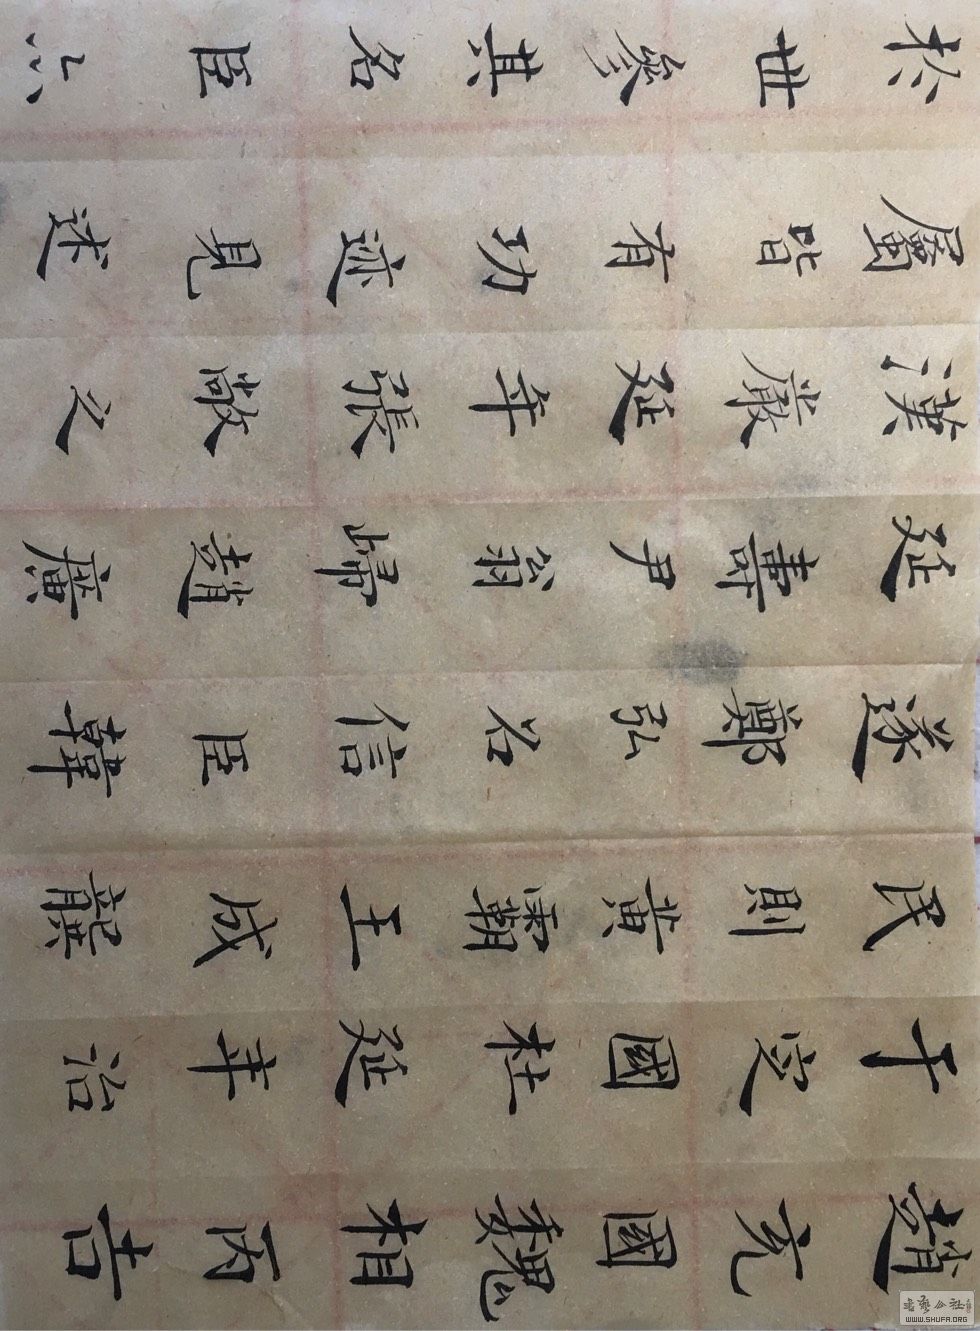 趙充國魏相丙吉
于定國杜延年治
民則黃霸王成龔
遂鄭弘召信臣韓
延壽尹翁歸趙廣
漢嚴延年張敞之
屬皆有功迹見述
於世參其名臣亦
書藝公社
WWW.SHUFA.ORG